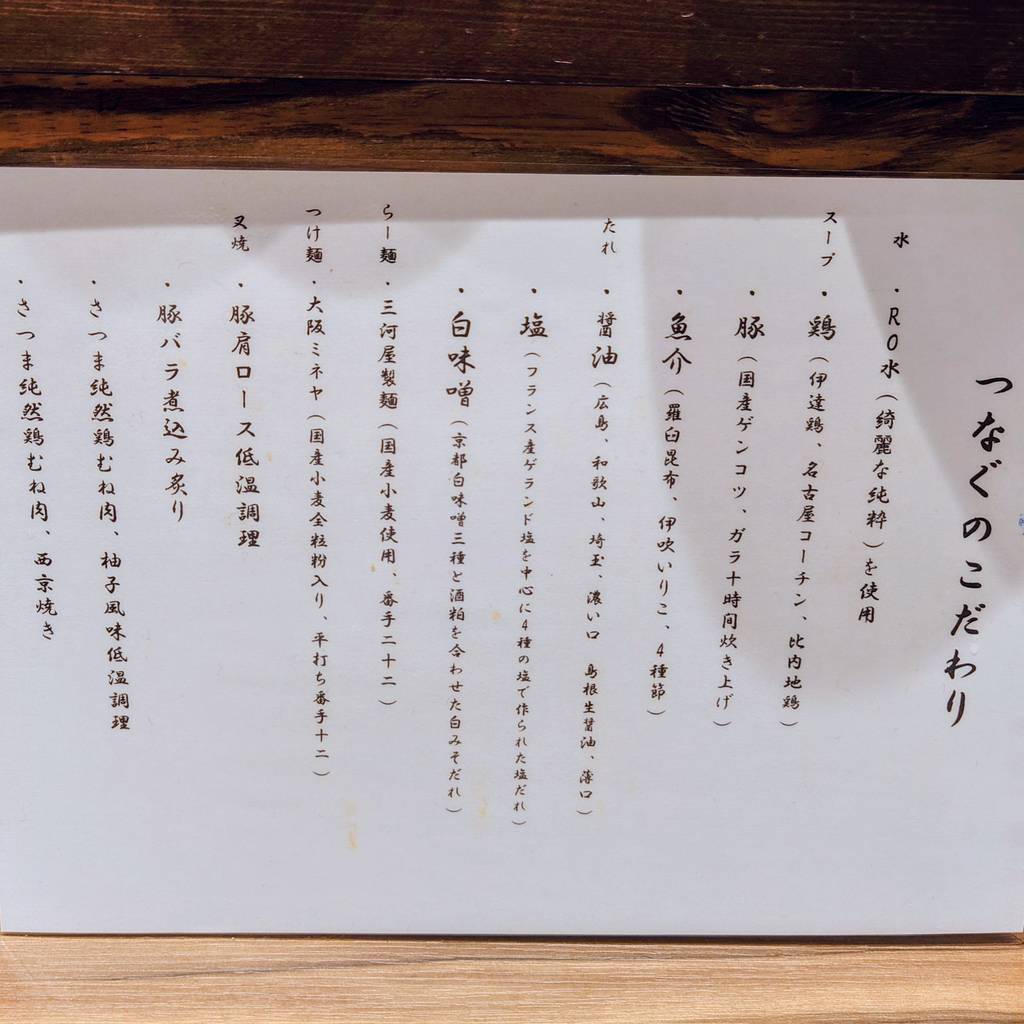 つなぐのこだわり
水 ・RO水(綺麗な純粋)を使用
スープ ・鶏(伊達鶏、名古屋コーチン、比内地鶏)
・豚(国産ゲンコツ、ガラ十時間炊き上げ)
・魚介(羅臼昆布、伊吹いりこ、4種節)
たれ ・醤油(広島、和歌山、埼玉、濃い口 島根生醤油、薄口)
・塩(フランス産ゲランド塩を中心に4種の塩で作られた塩だれ)
・白味噌(京都白味噌三種と酒粕を合わせた白みそだれ)
らー麺 ・三河屋製麺(国産小麦使用、番手二十二)
つけ麺 ・大阪ミネヤ(国産小麦全粒粉入り、平打ち番手十二)
叉焼 ・豚肩ロース低温調理
・豚バラ煮込み炙り
・さつま純然鶏むね肉、柚子風味低温調理
・さつま純然鶏むね肉、西京焼き